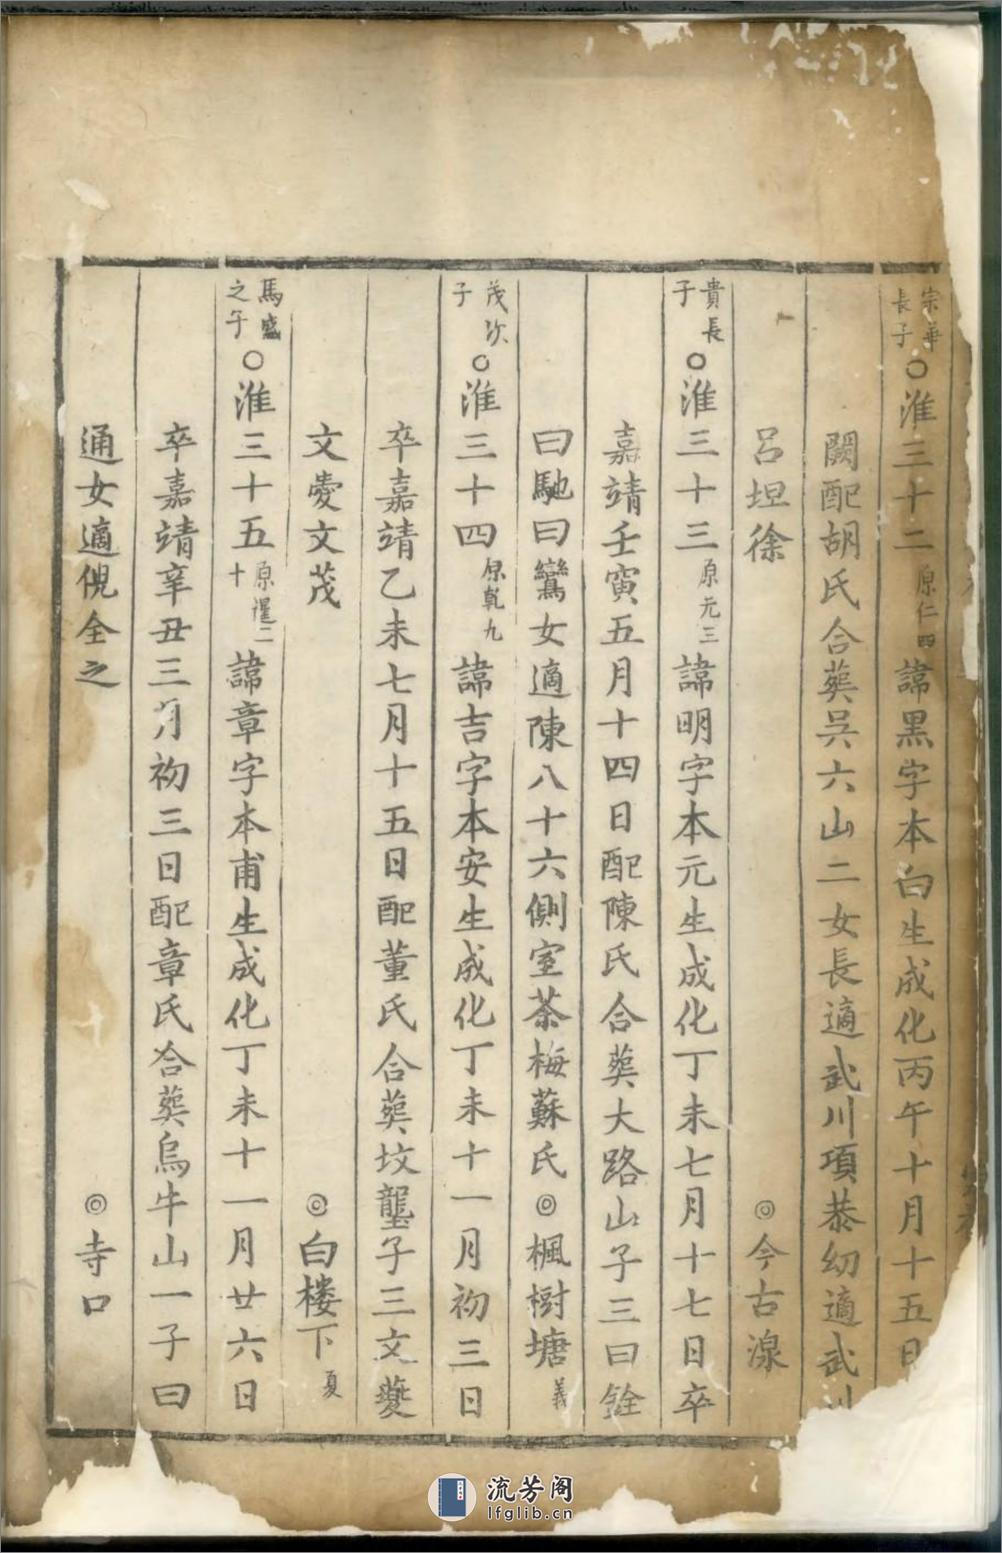 宗華長子○淮三十二原仁四諱黑字本白生成化丙午十月十五日
闕配胡氏合葬吳六山二女長適武川項恭幼適武川
呂坦徐 ◎今古湶
貴長子○淮三十三原元三諱明字本元生成化丁未七月十七日卒
嘉靖壬寅五月十四日配陳氏合葬大路山子三曰銓
曰馳曰鸞女適陳八十六側室茶梅蘇氏◎楓樹塘義
茂次子○淮三十四原乾九諱吉字本安生成化丁未十一月初三日
卒嘉靖乙未七月十五日配董氏合葬坟壟子三文夔
文夌文茂 ◎白楼下夏
馬盛之子○淮三十五原暹二十諱章字本甫生成化丁未十一月廿六日
卒嘉靖辛丑三月初三日配章氏合葬烏牛山一子曰
通女適倪全之 ◎寺口
流芳阁
lfglib.cn